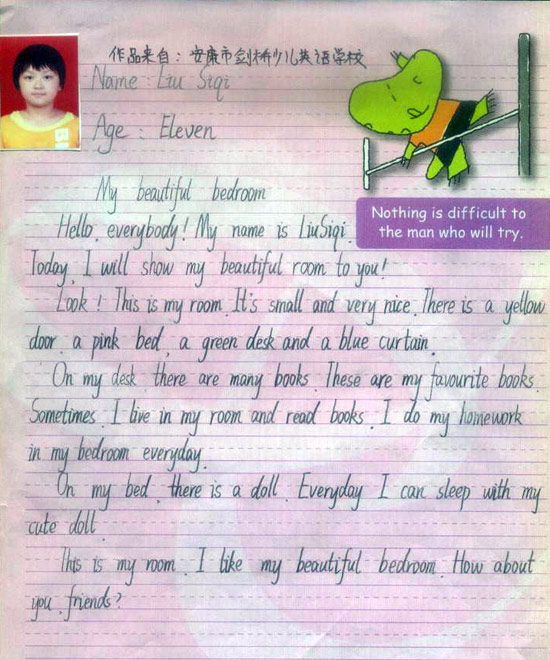 作品来自：安康市剑桥少儿英语学校
Name : Liu Siqi
Age : Eleven
My beautiful bedroom
Hello, everybody! My name is LiuSiqi.
Nothing is difficult to
the man who will try.
Today, I will show my beautiful room to you!
Look! This is my room. It's small and very nice. There is a yellow
door, a pink bed, a green desk and a blue curtain.
On my desk there are many books. These are my favourite books.
Sometimes, I live in my room and read books. I do my homework
in my bedroom everyday.
On my bed, there is a doll. Everyday I can sleep with my
cute doll.
This is my room. I like my beautiful bedroom. How about
you, friends?